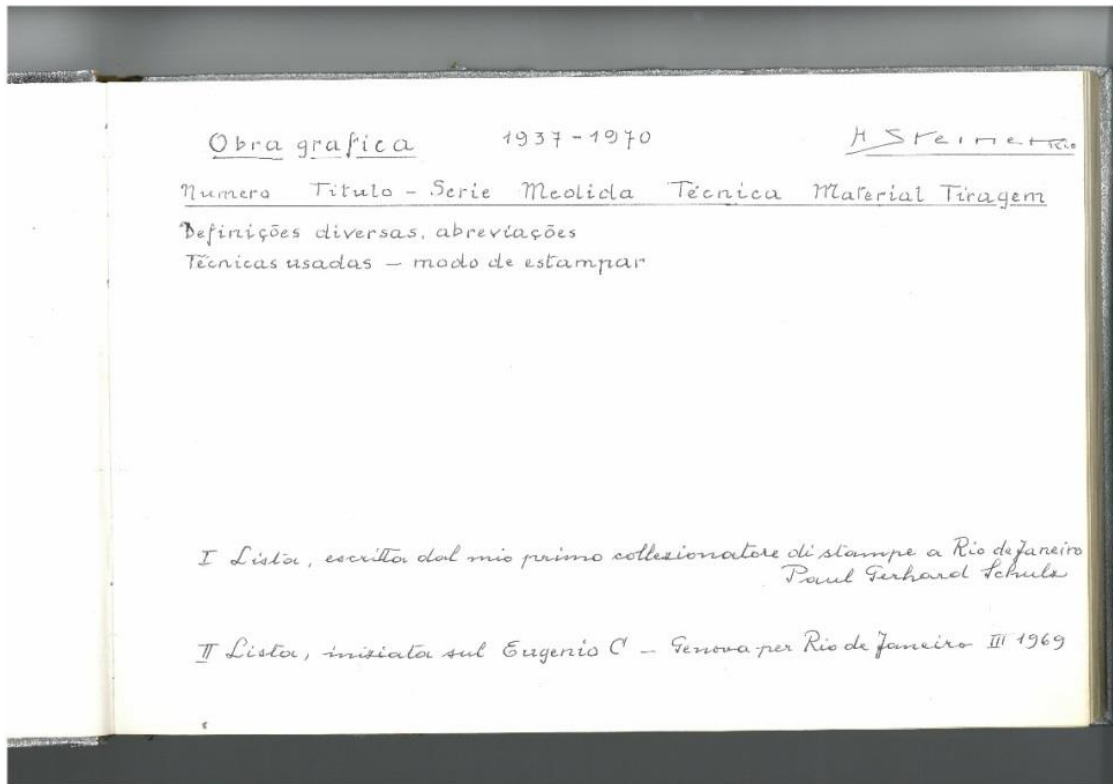 Obra grafica 1937-1970 H Steiner Rio
Numero Titulo - Serie Medida Técnica Material Tiragem
Definições diversas, abreviações
Técnicas usadas - modo de estampar
I Lista, escritta dal mio primo collezionatore di stampe a Rio de Janeiro
Paul Gerhard Schulz
II Lista, iniziata sul Eugenio C - Genova per Rio de Janeiro III 1969